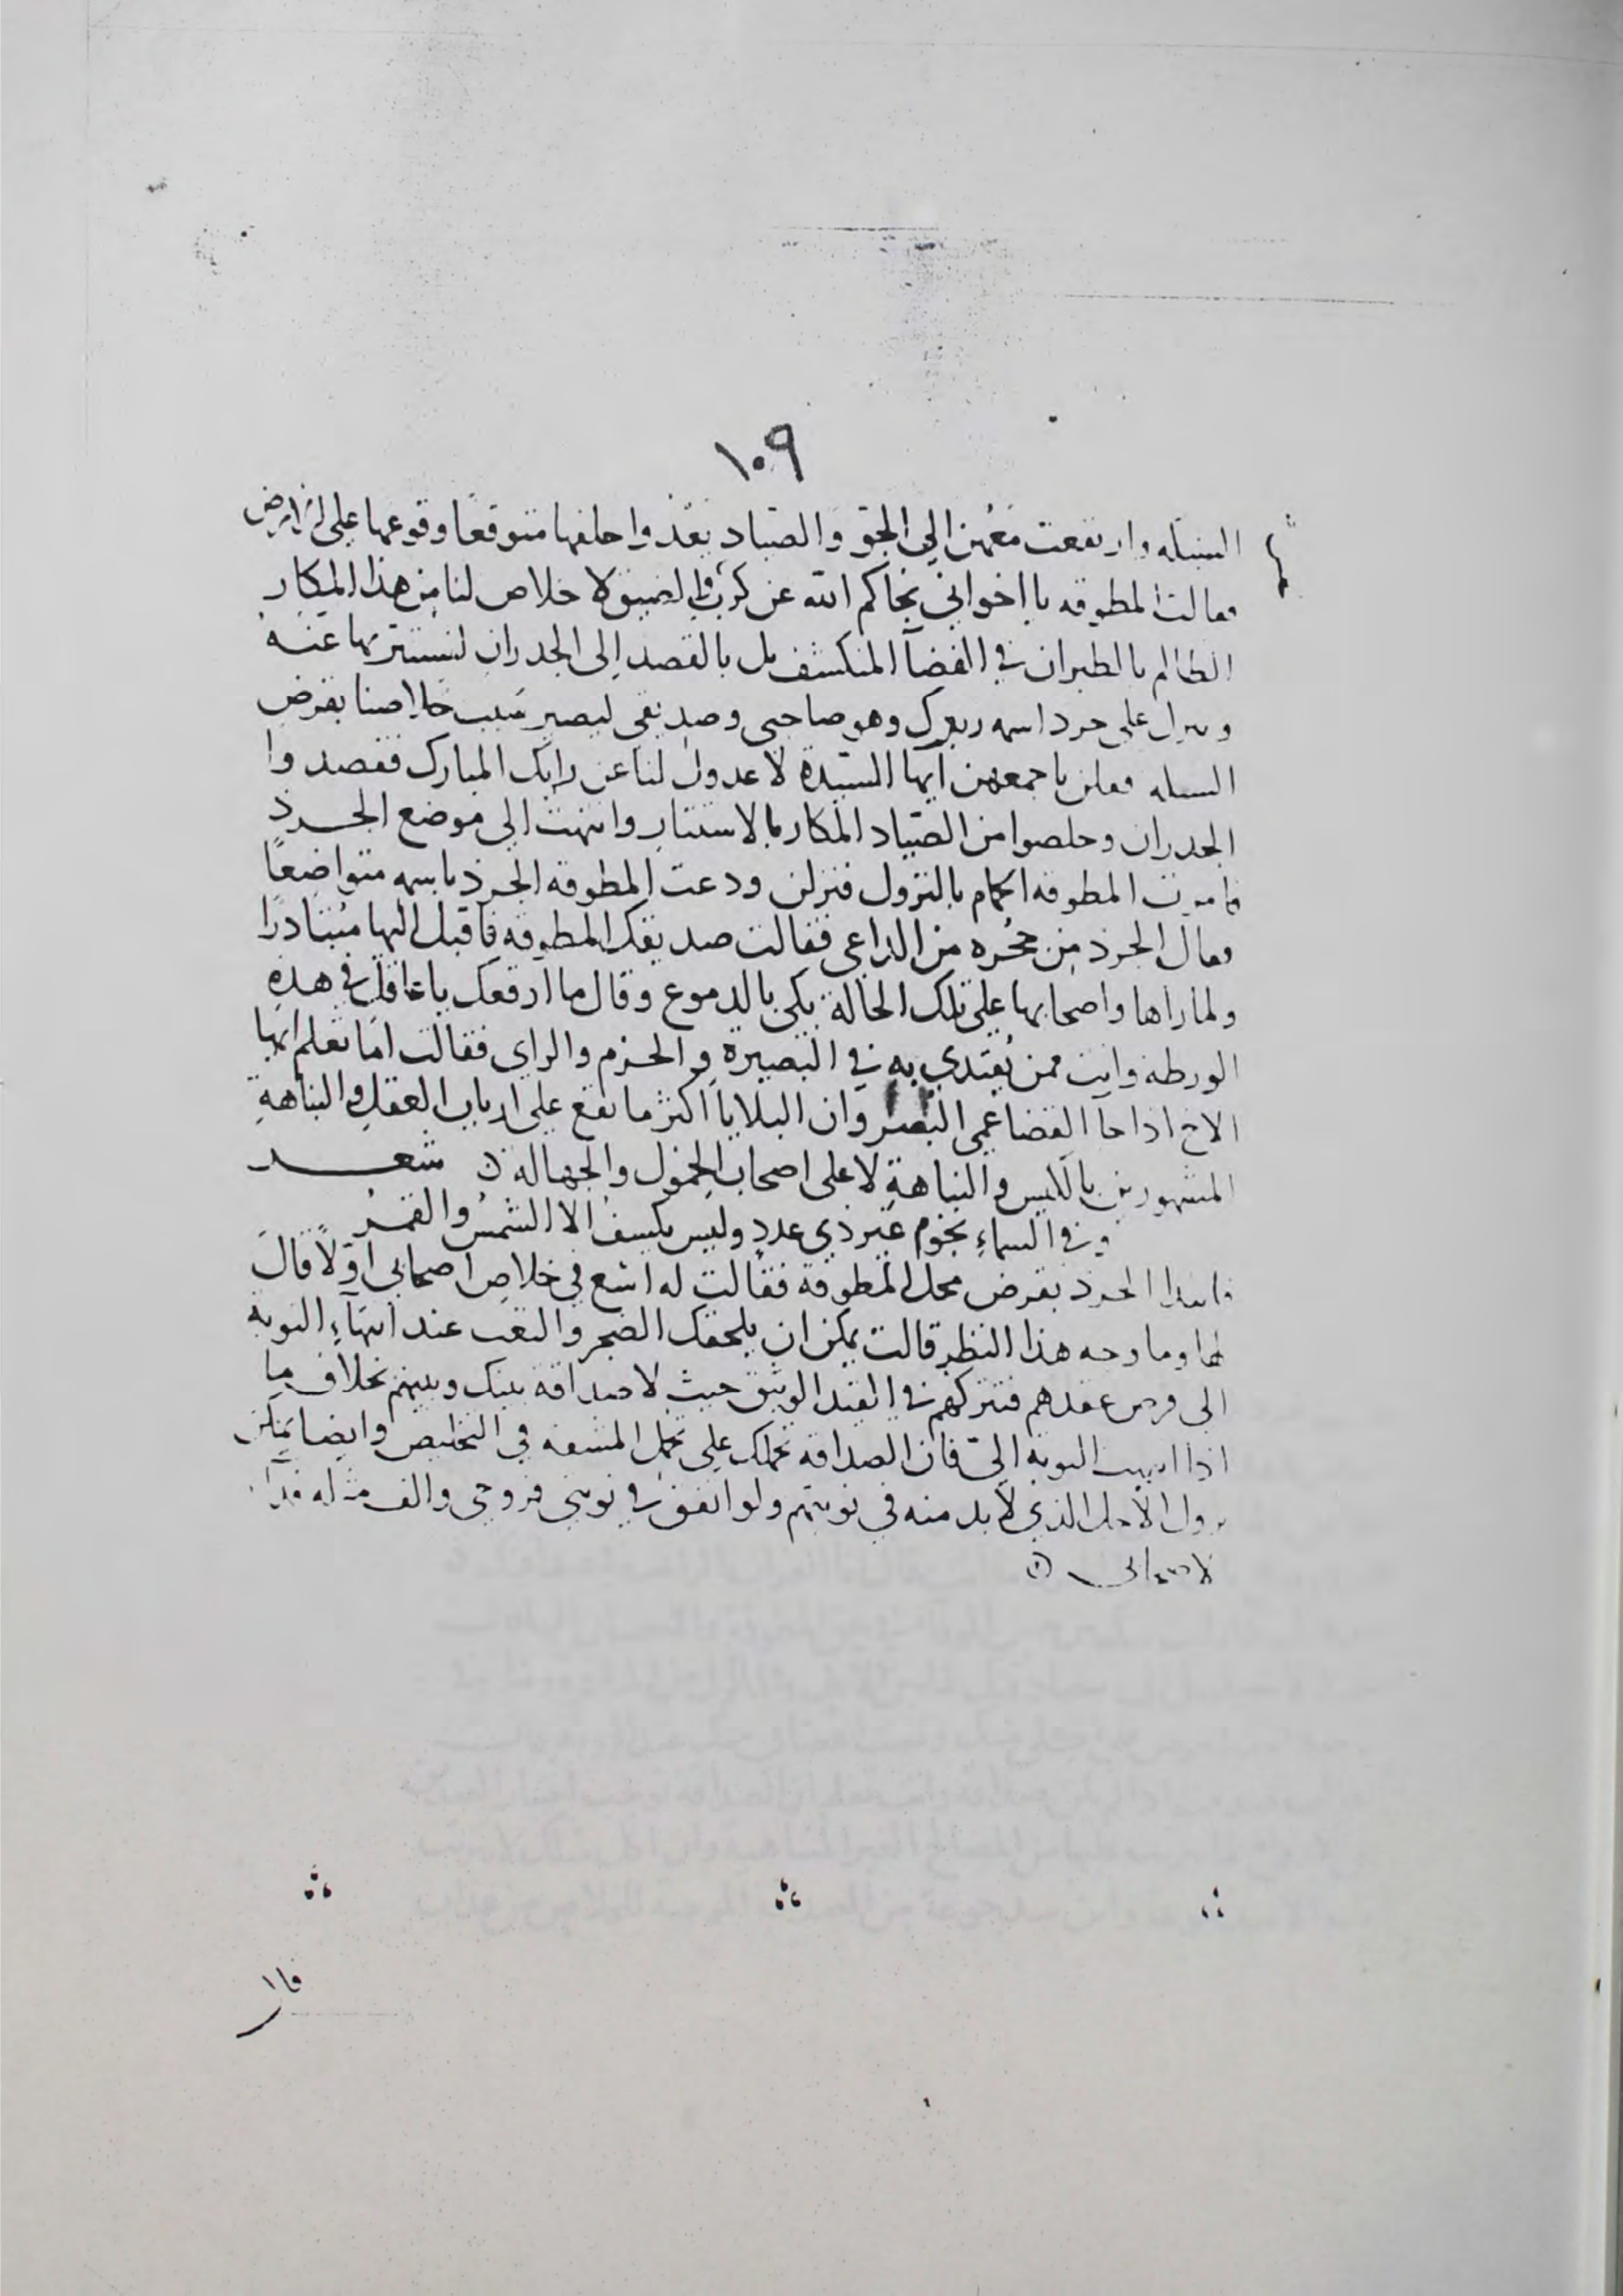 ١٠٩
الشبكه وارتفعت معهن الى الجو والصياد يعدوا خلفها متوقعا وقوعها على الارض
فقالت المطوقه يا اخواني نجاكم الله عن كرب الضيق لا خلاص لنا من هذا المكار
الظالم بالطيران في الفضآ المنكشف بل بالقصد الى الجدران لنستتر بها عنه
وننزل على جرد اسمه زيرك وهو صاحبى وصديقى ليصير سبب خلاصنا بقرض
الشبكه فقلن باجمعهن ايها السيدة لا عدول لنا عن رايك المبارك فقصدوا
الجدران وخلصوا من الصياد المكار بالاستتار وانتهت الى موضع الجرذ
فامرت المطوقه الحمام بالنزول فنزلن ودعت المطوقه الجرذ باسمه متواضعًا
فقال الجرذ من جحره من الداعى فقالت صديقتك المطوقه فاقبل اليها متبادرا
ولما راها واصحابها على تلك الحالة بكى بالدموع وقال ما اوقعك يا عاقل في هذه
الورطه وانت ممن يقتدي به في البصيرة والحزم والراى فقالت اما تعلم ايها
الاخ اذا جآ القضا عمى البصر وان البلايا اكثر ما تقع على ارباب العقل والنباهة
المشهورين بالكيس والنباهة لا على اصحاب الخمول والجهاله شعر
وفي السماء نجوم غير ذي عدد وليس يكسف الا الشمس والقمر
فابتدا الجرذ بقرض محل المطوقة فقالت له اسع في خلاص اصحابى اولًا قال
لها وما وجه هذا النظر قالت يمكن ان يلحقك الضجر والتعب عند انتهآء النوبة
الى قرض عقدهم فتتركهم في القيد الوثيق حيث لا صداقة بينك وبينهم بخلاف ما
اذا انتهت النوبة الىّ فان الصداقه تحملك على تحمل المشقه في التخليص وايضا يمكن
نزول الاجل الذي لا بد منه في نوبتهم ولو اتفق في نوبتي فروحى والف مثله فدآء
لاصحابى